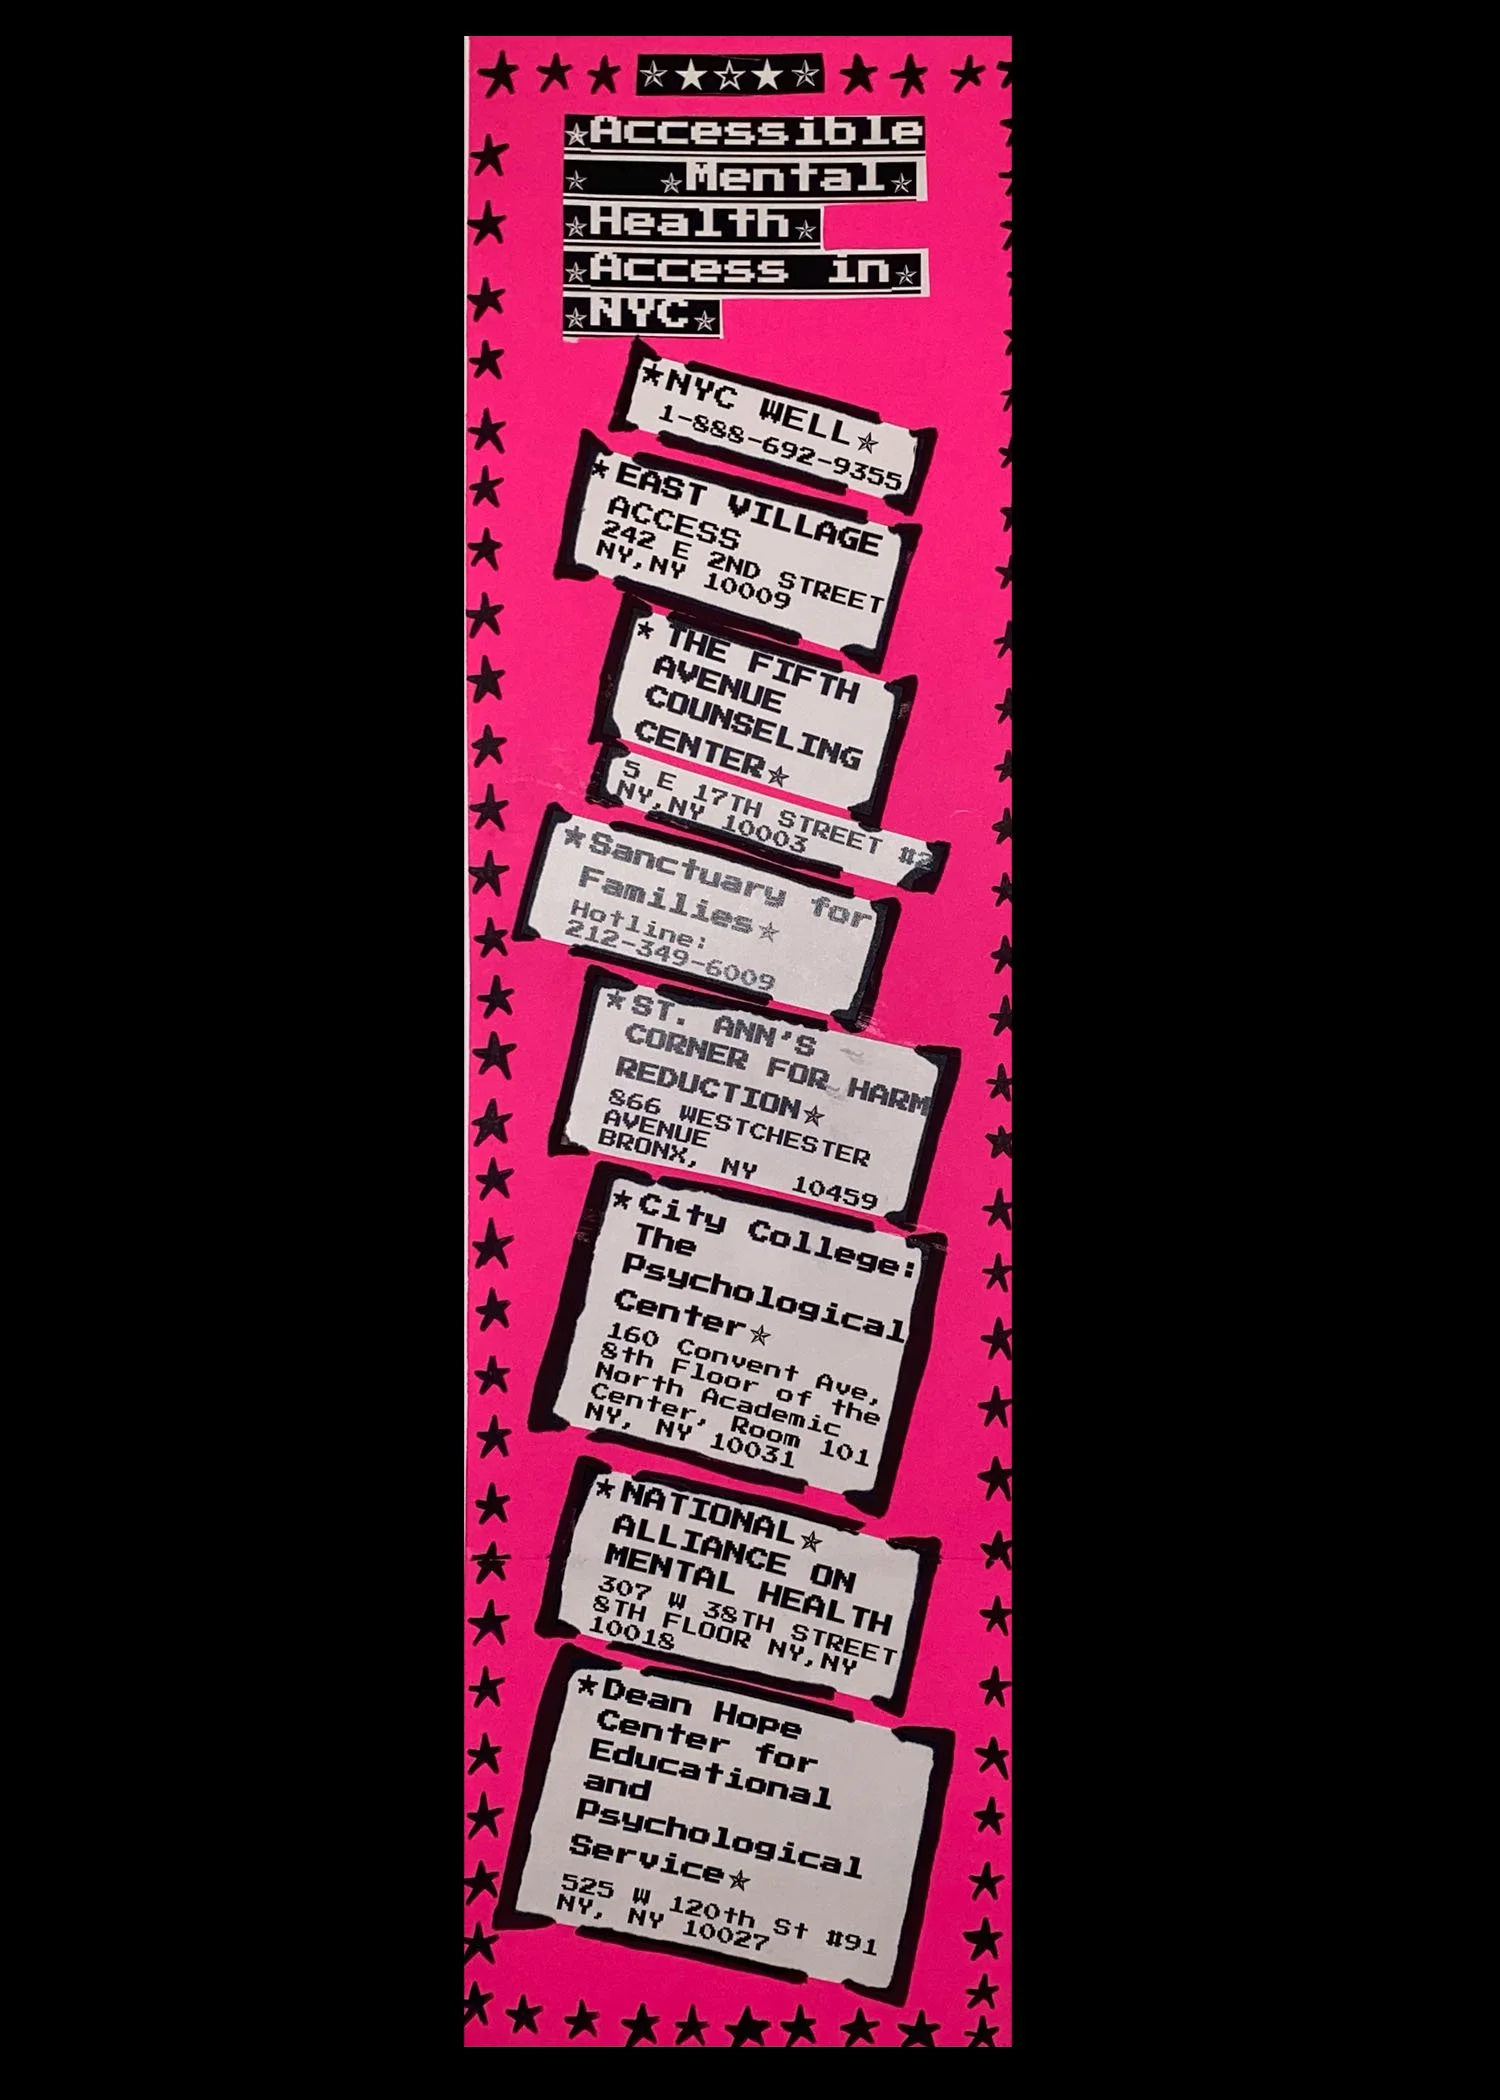 Accessible
Mental
Health
Access in
NYC
NYC WELL
1-888-692-9355
EAST VILLAGE
ACCESS
242 E 2ND STREET
NY,NY 10009
THE FIFTH
AVENUE
COUNSELING
CENTER
5 E 17TH STREET #2
NY,NY 10003
Sanctuary for
Families
Hotline:
212-349-6009
ST. ANN'S
CORNER FOR HARM
REDUCTION
866 WESTCHESTER
AVENUE
BRONX, NY 10459
City College:
The
Psychological
Center
160 Convent Ave,
8th Floor of the
North Academic
Center, Room 101
NY, NY 10031
NATIONAL
ALLIANCE ON
MENTAL HEALTH
307 W 38TH STREET
8TH FLOOR NY,NY
10018
Dean Hope
Center for
Educational
and
Psychological
Service
525 W 120th St #91
NY, NY 10027